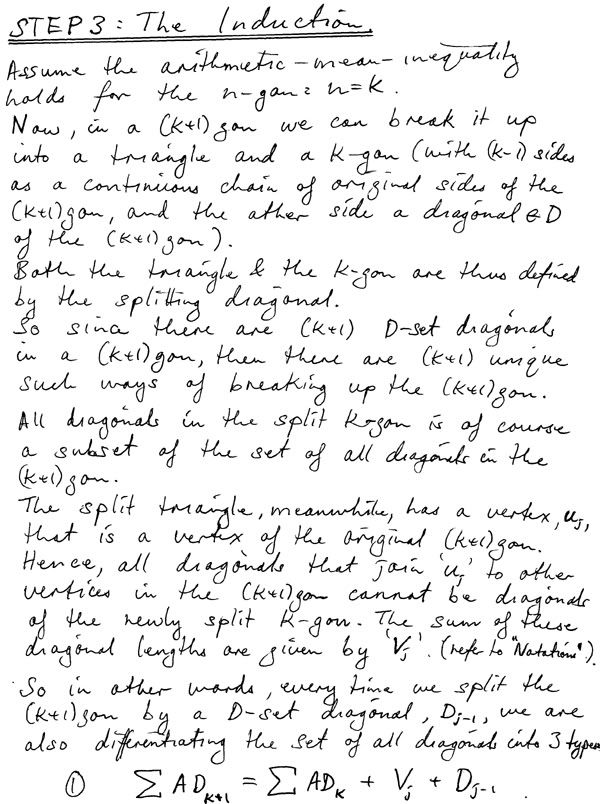 STEP 3: The Induction.
Assume the arithmetic-mean-inequality
holds for the n-gon: n=k.
Now, in a (k+1)gon we can break it up
into a triangle and a k-gon (with (k-1) sides
as a continuous chain of original sides of the
(k+1)gon, and the other side a diagonal ∈ D
of the (k+1)gon).
Both the triangle & the k-gon are thus defined
by the splitting diagonal.
So since there are (k+1) D-set diagonals
in a (k+1)gon, then there are (k+1) unique
such ways of breaking up the (k+1)gon.
All diagonals in the split k-gon is of course
a subset of the set of all diagonals in the
(k+1)gon.
The split triangle, meanwhile, has a vertex, uj,
that is a vertex of the original (k+1)gon.
Hence, all diagonals that join 'uj' to other
vertices in the (k+1)gon cannot be diagonals
of the newly split k-gon. The sum of these
diagonal lengths are given by 'Vj'. (refer to "Notations").
So in other words, every time we split the
(k+1)gon by a D-set diagonal, Dj-1, we are
also differentiating the set of all diagonals into 3 types
① ∑ADk+1 = ∑ADk + Vj + Dj-1.